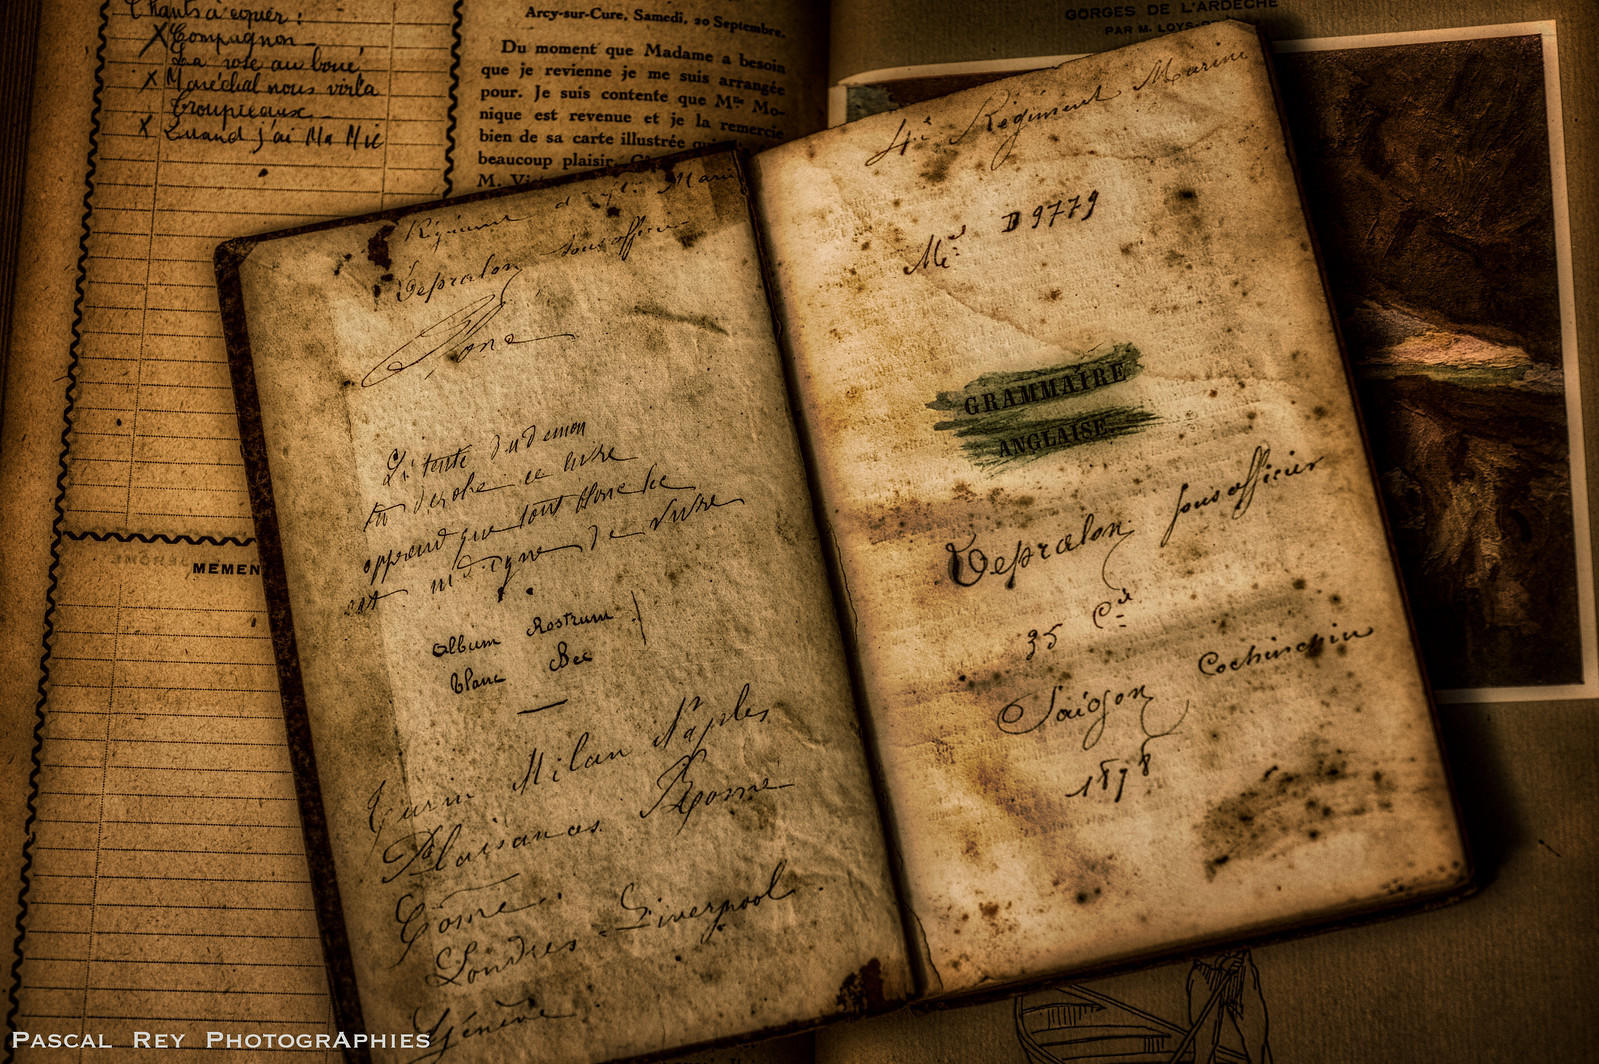 Chants à copier :
X Compagnon
La rose au boué
X Maréchal nous voilà
Troupeaux
X Quand j'ai Ma Mie
MEMEN
Arcy-sur-Cure, Samedi, 20 Septembre.
Du moment que Madame a besoin
que je revienne je me suis arrangée
pour. Je suis contente que Mlle Mo-
nique est revenue et je la remercie
bien de sa carte illustrée qui
beaucoup plaisir.
M.
GORGES DE L'ARDÈCHE
PAR M. LOYS
Régiment Marin
Depralon sous officier
Si tente du demon
tu derobe ce livre
apprend que tout
est indigne de vivre
album Rostrum
blanc Bec
Turin Milan Naples
Plaisance Rome
Côme
Londres Liverpool
Genève
4e Régiment Marine
Mle D 9779
GRAMMAIRE
ANGLAISE
Depralon sous officier
35 Cie
Saigon Cochinchin
1878
PASCAL REY PHOTOGRAPHIES